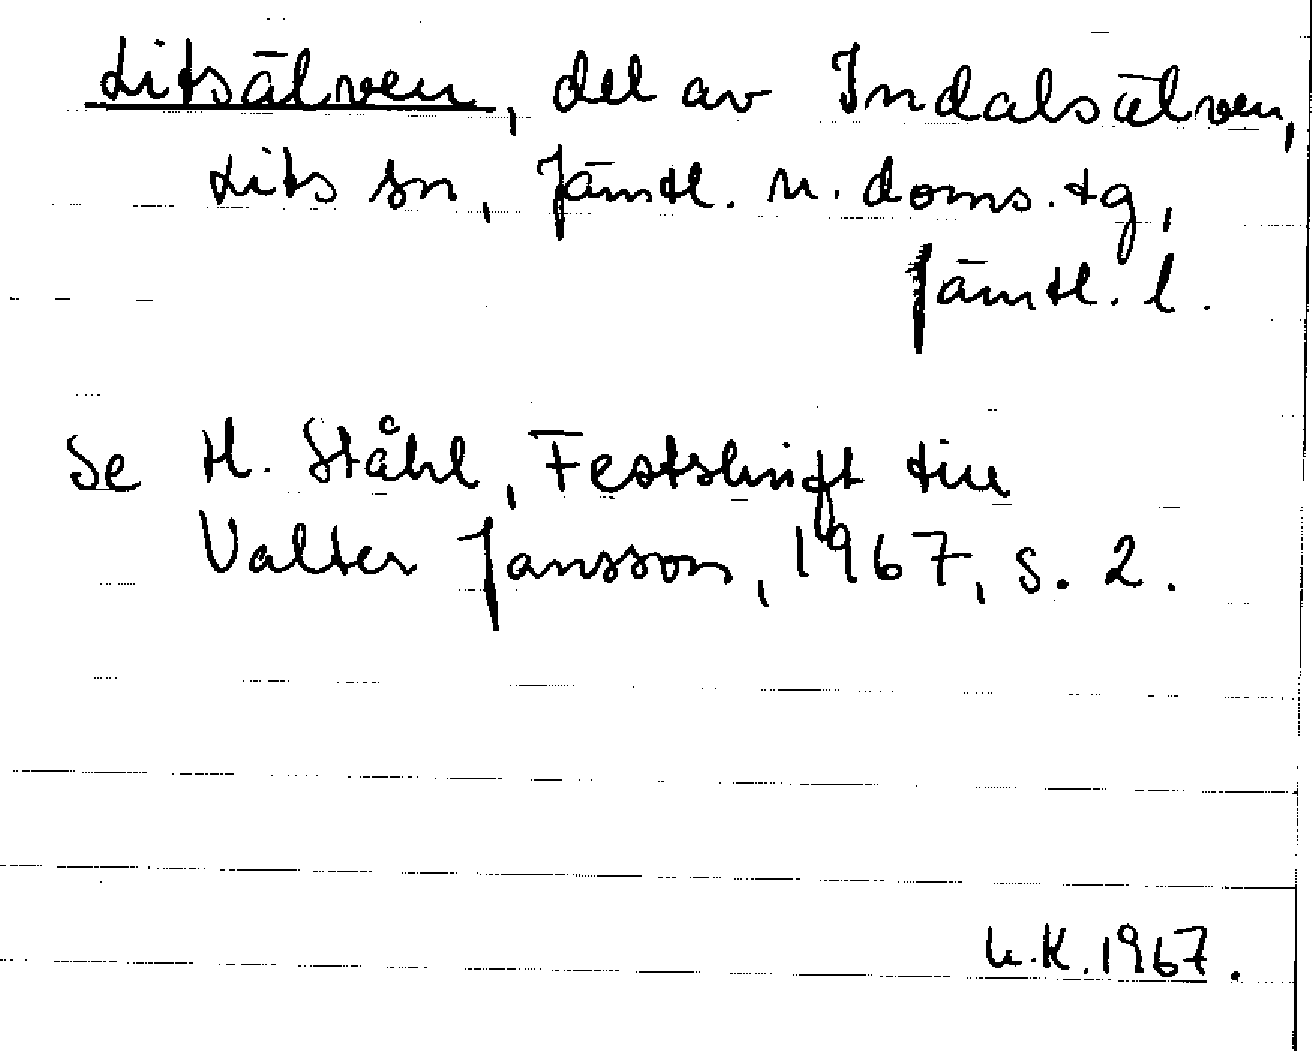 Litsälven, del av Indalsälven,
Lits sn, Jämtl. n. doms. tg,
Jämtl. l.
Se H. Ståhl, Festskrift till
Valter Jansson, 1967, s. 2.
K. 1967.